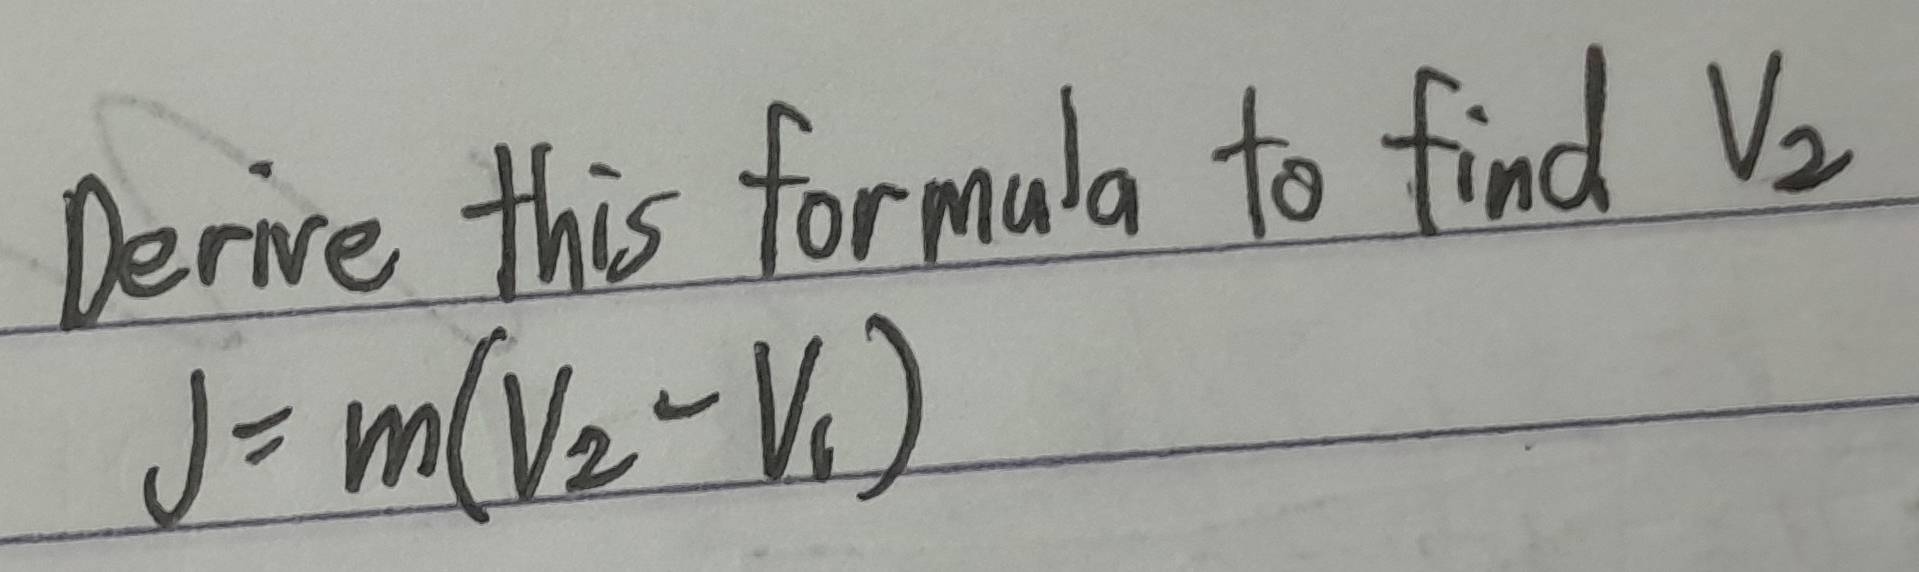 Derive this formula to find V₂
J = m(V₂ - V₁)